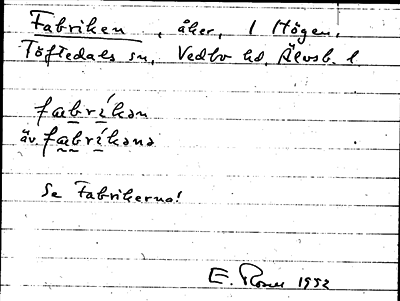 Fabriken, åker, 1 Högen,
Töftedals sn, Vedbo hd, Älvsb. l
fabríkən
äv. fabríkənə
Se Fabrikerna!
E. 1952